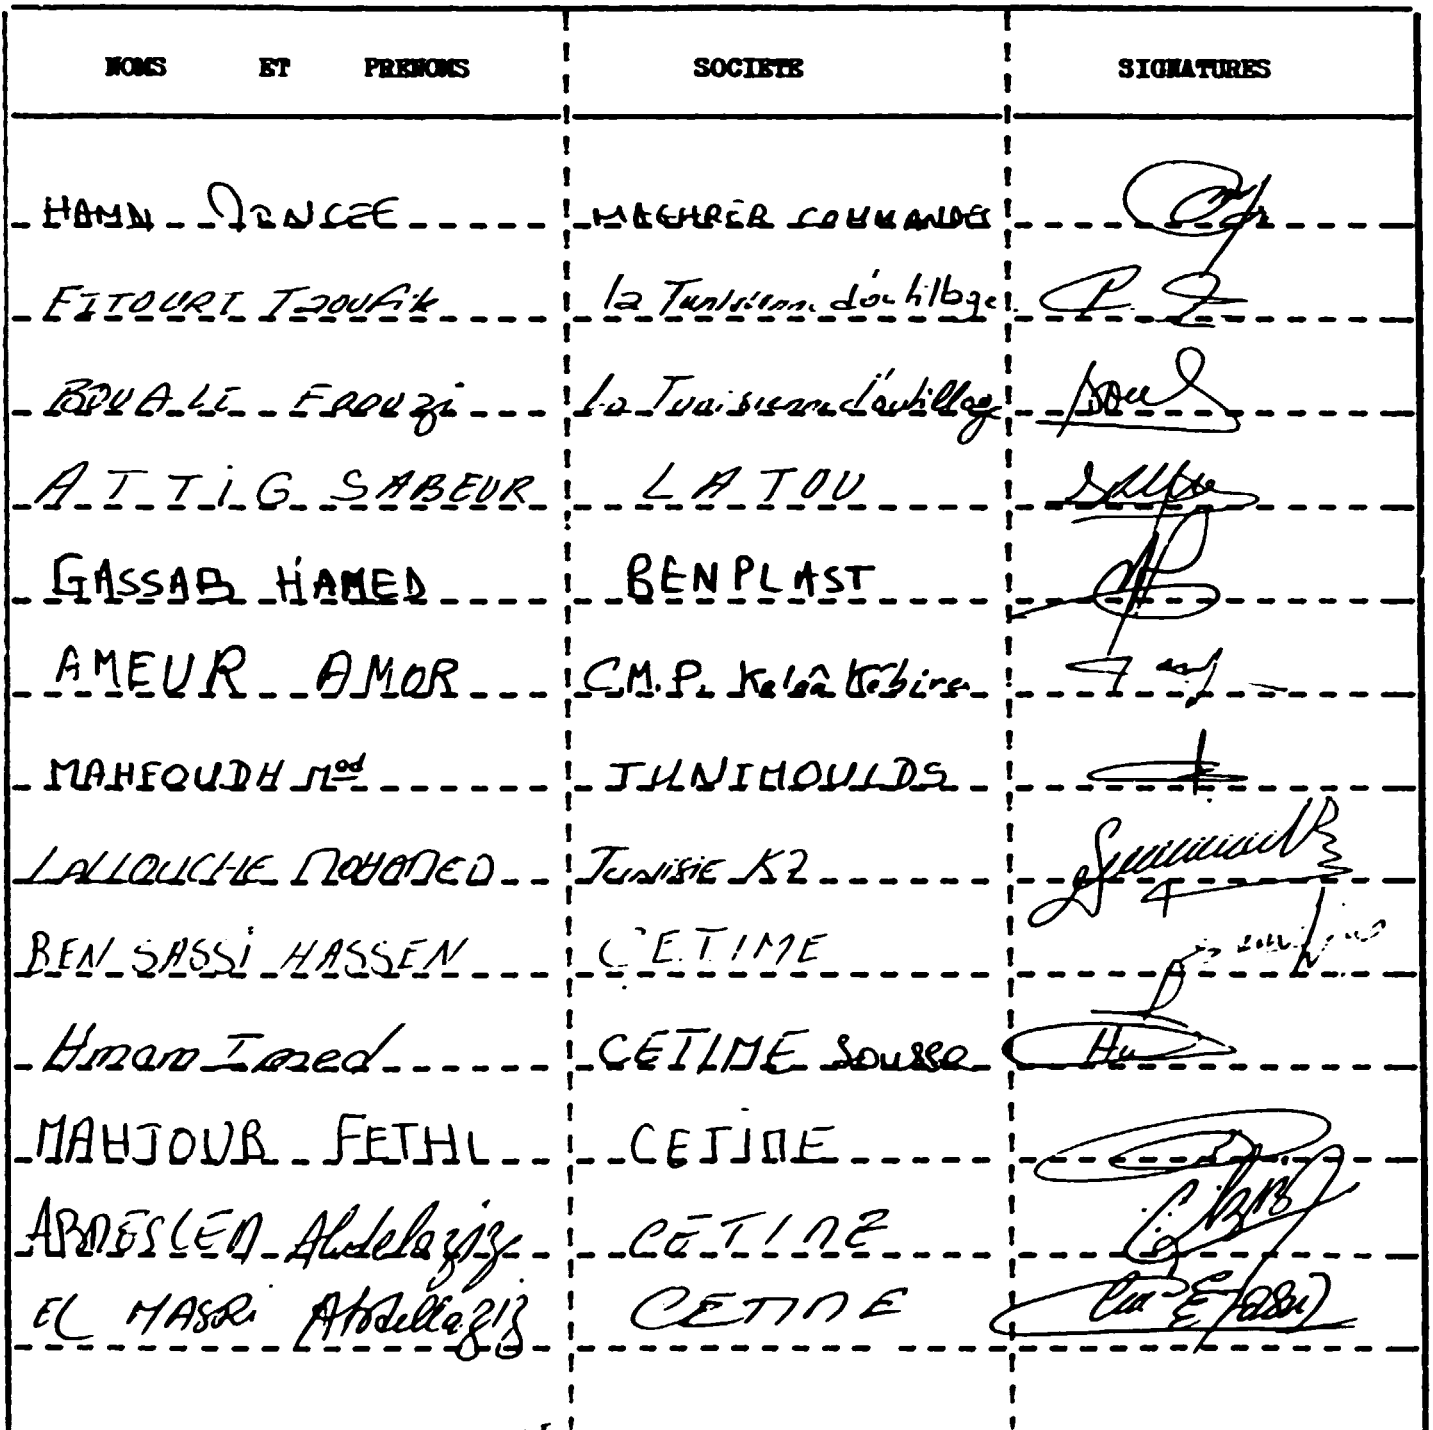 NOMS ET PRENOMS SOCIETE SIGNATURES
HAMDI MONCEF MAGHREB COMMANDES
FITOURI Taoufik la Tunisienne d'outillage
BOUALI Faouzi la Tunisienne d'outillage
ATTIG SABEUR LATOU
GASSAB HAMED BENPLAST
AMEUR AMOR C.M.P. Kalâa Kébira
MAHFOUDH Mod TUNIMOULDS
LALLOUCHE MOHAMED Tunisie K7
BEN SASSI HASSEN CETIME
Hmam Imed CETIME Sousse
MAHJOUB FETHI CETIME
ABDESLEM Abdelaziz CETIME
EL MASRI Abdellaziz CETIME